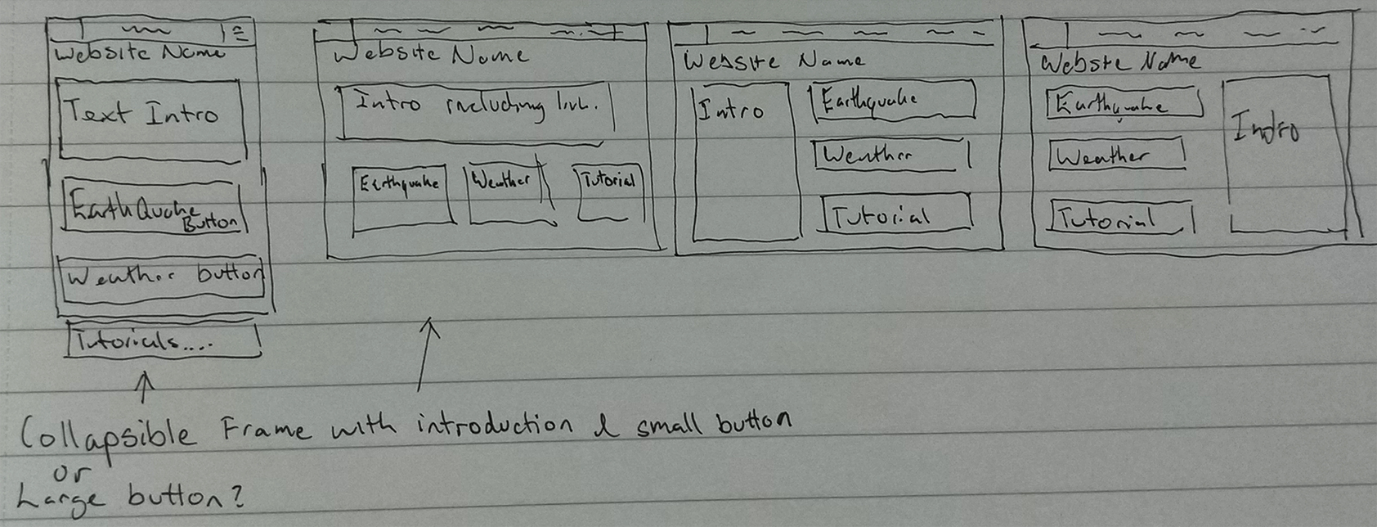 Website Name
Text Intro
EarthQuake
Button
Weather button
Tutorials....
Website Name
Intro including
Earthquake
Weather
Tutorial
Website Name
Intro
Earthquake
Weather
Tutorial
Website Name
Earthquake
Weather
Tutorial
Intro
Collapsible Frame with introduction & small button
or
Large button?